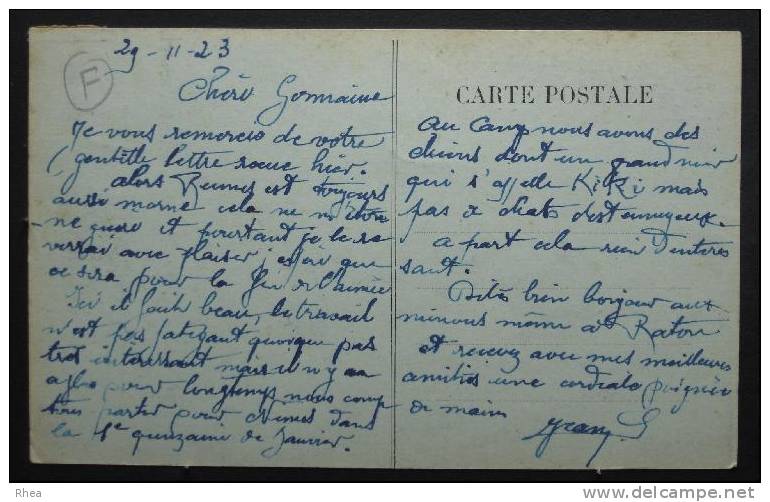 29-11-23
F
Chère Germaine
Je vous remercie de votre
gentille lettre reçue hier.
alors Rennes est toujours
aussi morne cela ne m'étonne
guère et pourtant je le re
verrai avec plaisir, espère que
ce sera pour la fin de l'année
Ici il fait beau, le travail
n'est pas fatigant quoique pas
trop intéressant mais il n'y en a
plus pour longtemps nous comp
tons partir pour dans
la 1e quinzaine de Janvier.
CARTE POSTALE
Au Camp nous avons des
chiens dont un grand noir
qui s'appelle KiKi mais
pas de chats c'est ennuyeux.
a part cela rien d'intéres
sant.
Dites bien bonjour aux
minous même à Raton
et recevez avec mes meilleures
amitiés une cordiale poignée
de main
Rhea
http://www.delcampe.net